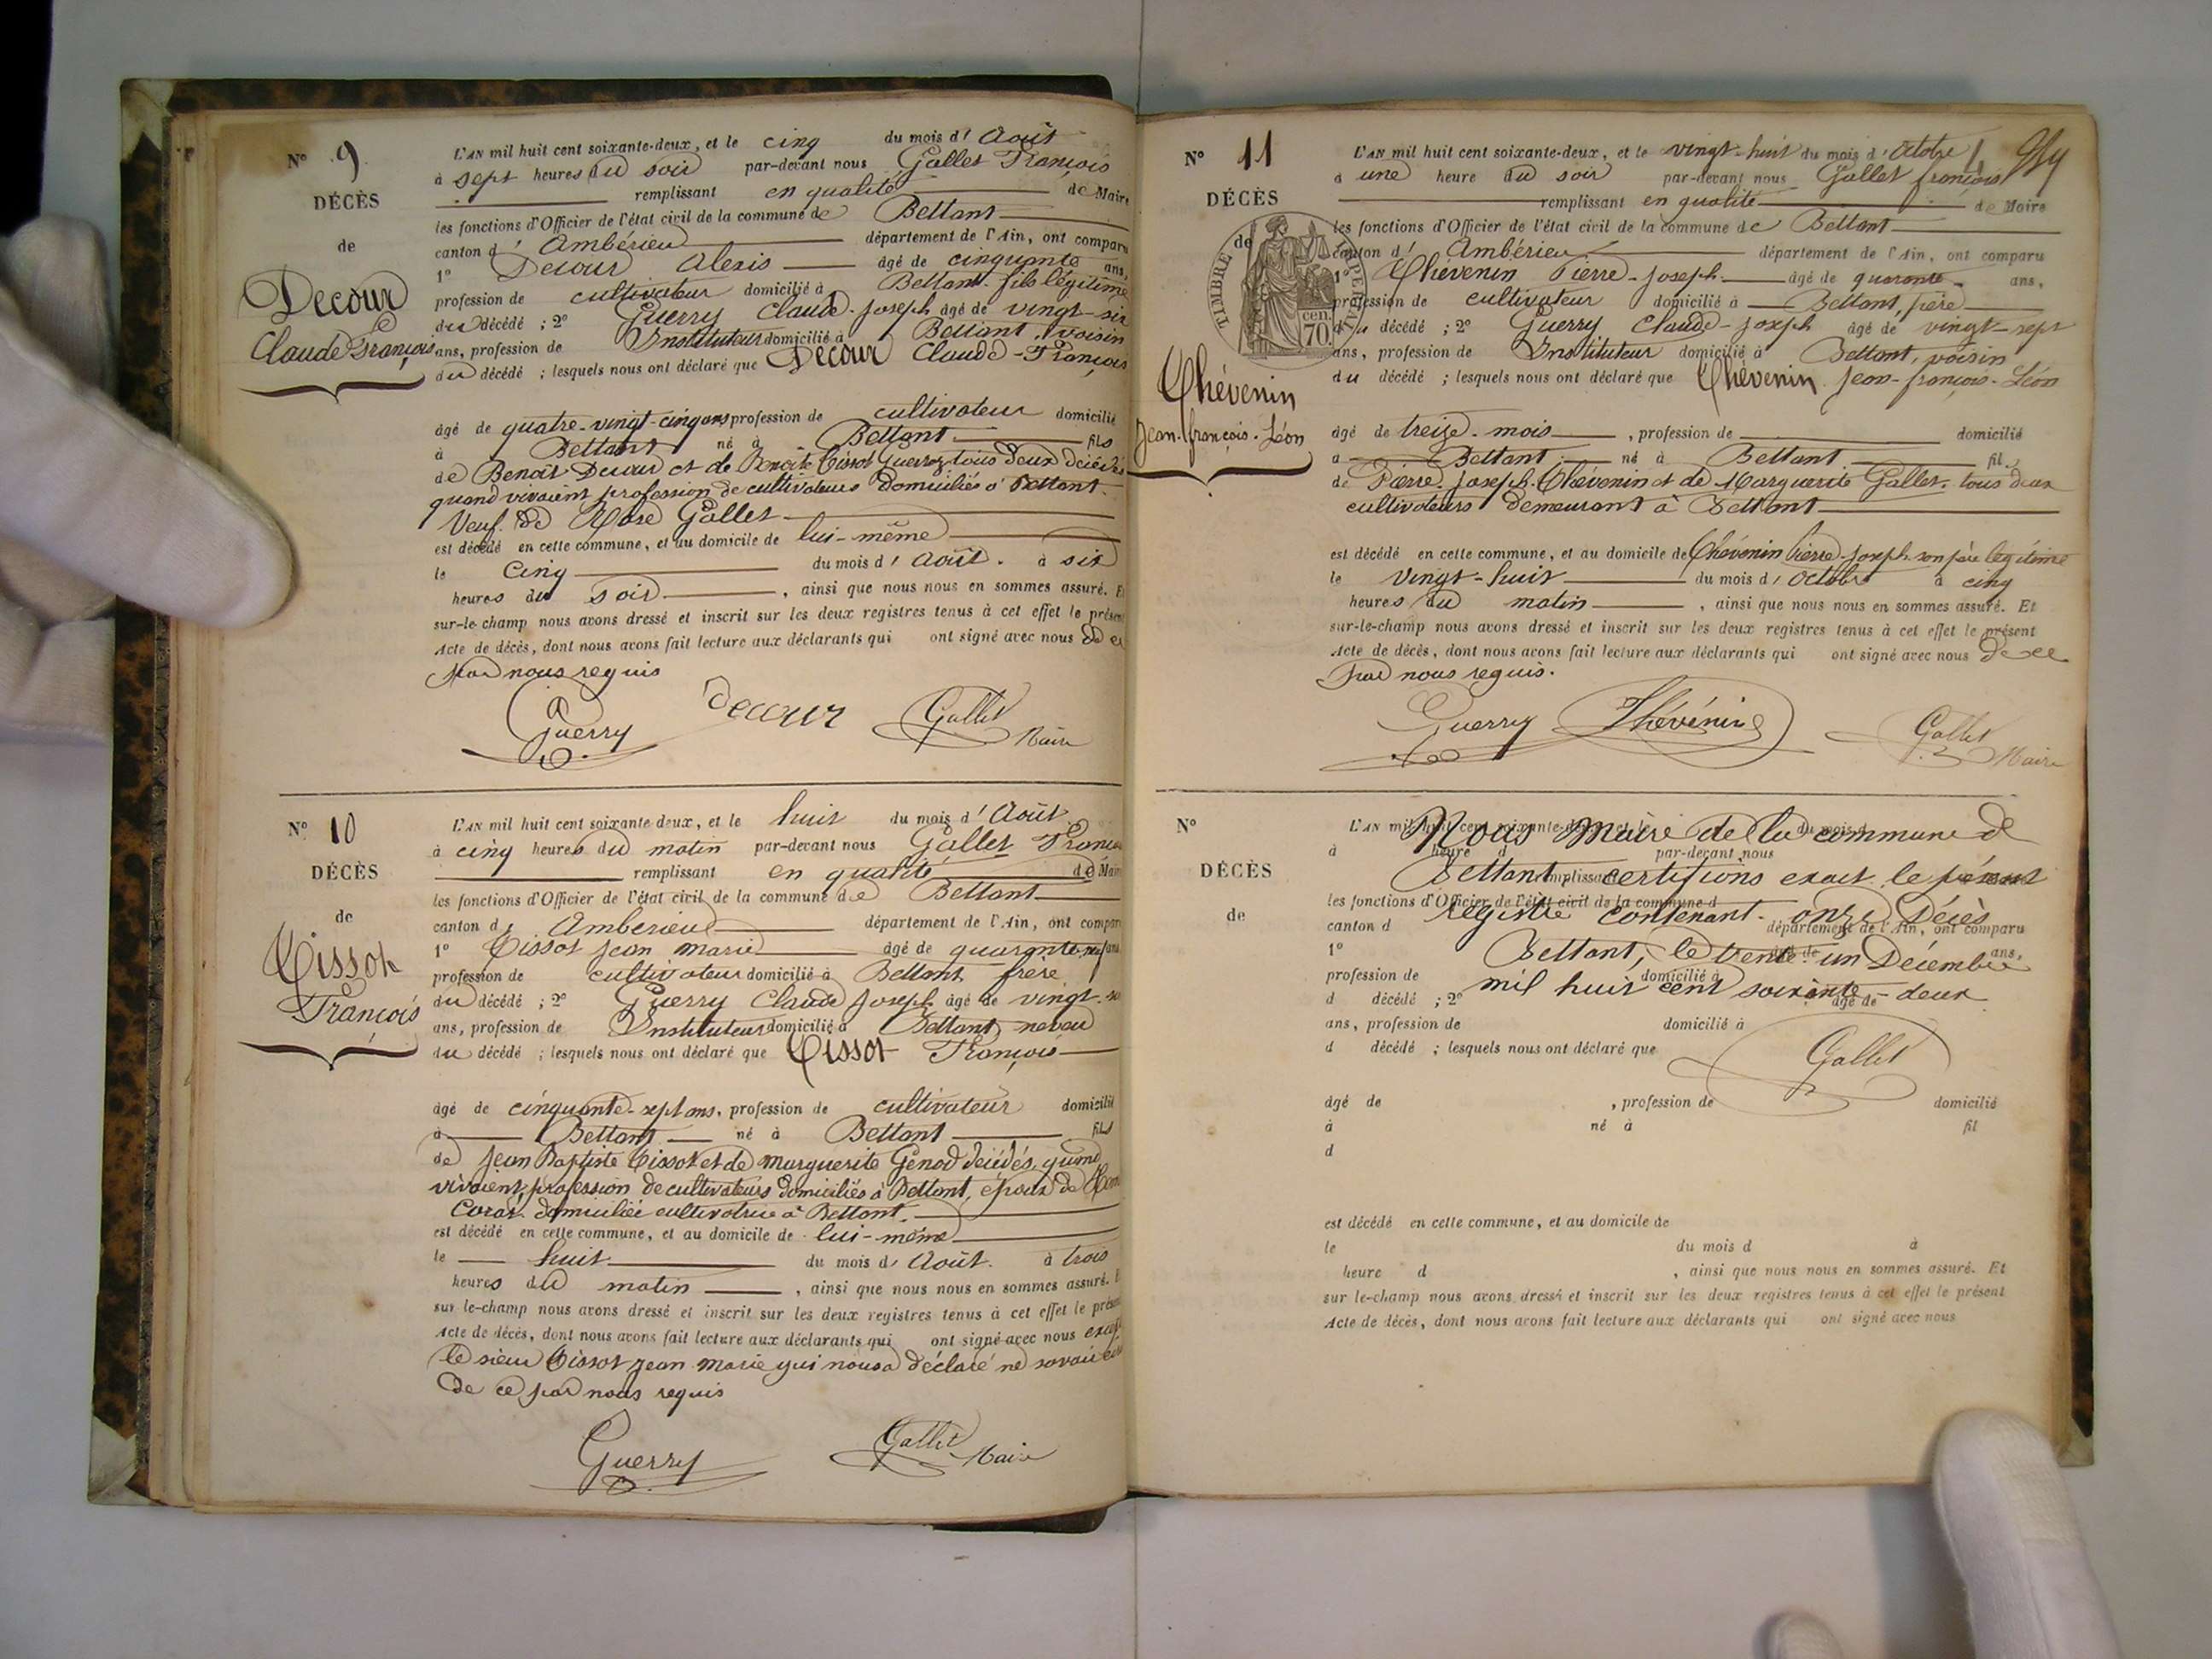 N° 9
DÉCÈS
de
Decour
Claude François
L'AN mil huit cent soixante-deux, et le cinq du mois d'Août
à sept heures du soir par-devant nous Gallet François
remplissant en qualité de Maire
les fonctions d'Officier de l'état civil de la commune de Bettant
canton d'Ambérieu département de l'Ain, ont comparu
1° Decour Alexis âgé de cinquante ans,
profession de cultivateur domicilié à Bettant fils légitime
du décédé ; 2° Guerry Claude-Joseph âgé de vingt-six
ans, profession de Instituteur domicilié à Bettant, voisin
du décédé ; lesquels nous ont déclaré que Decour Claude-François
âgé de quatre-vingt-cinq ans profession de cultivateur domicilié
à Bettant né à Bettant fils
de Benoît Decour et de Benoite Tissot Guerry tous deux décédés
quand vivaient profession de cultivateurs domiciliés à Bettant.
Veuf de Rose Gallet
est décédé en cette commune, et au domicile de lui-même
le Cinq du mois d'Août. à six
heures du soir, ainsi que nous nous en sommes assuré. Et
sur-le-champ nous avons dressé et inscrit sur les deux registres tenus à cet effet le présent
Acte de décès, dont nous avons fait lecture aux déclarants qui ont signé avec nous de ce
par nous requis
Guerry Decour Gallet Maire
N° 10
DÉCÈS
de
Tissot
François
L'AN mil huit cent soixante-deux, et le huit du mois d'Août
à cinq heures du matin par-devant nous Gallet François
remplissant en qualité de Maire
les fonctions d'Officier de l'état civil de la commune de Bettant
canton d'Ambérieu département de l'Ain, ont comparu
1° Tissot Jean Marie âgé de quarante-neuf ans
profession de cultivateur domicilié à Bettant, frère
du décédé ; 2° Guerry Claude Joseph âgé de vingt-
ans, profession de Instituteur domicilié à Bettant, neveu
du décédé ; lesquels nous ont déclaré que Tissot François
âgé de cinquante-sept ans, profession de cultivateur domicilié
à Bettant né à Bettant fils
de Jean Baptiste Tissot et de Marguerite Genod décédés, quand
vivaient, profession de cultivateurs domiciliés à Bettant, époux de
Coras domiciliée cultivatrice à Bettant.
est décédé en cette commune, et au domicile de lui-même
le huit du mois d'Août. à trois
heures du matin, ainsi que nous nous en sommes assuré. E
sur le-champ nous avons dressé et inscrit sur les deux registres tenus à cet effet le présent
Acte de décès, dont nous avons fait lecture aux déclarants qui ont signé avec nous excepté
le sieur Tissot Jean Marie qui nous a déclaré ne savoir
de ce par nous requis
Guerry Gallet Maire
N° 11
DÉCÈS
de
TIMBRE IMPERIAL
70 cen.
Chévenin
Jean-François-Léon
L'AN mil huit cent soixante-deux, et le vingt-huit du mois d'Octobre
à une heure du soir par-devant nous Gallet François
remplissant en qualité de Maire
les fonctions d'Officier de l'état civil de la commune de Bettant
canton d'Ambérieu département de l'Ain, ont comparu
1° Chévenin Pierre-Joseph âgé de quarante ans,
profession de cultivateur domicilié à Bettant, père
du décédé ; 2° Guerry Claude-Joseph âgé de vingt-sept
ans, profession de Instituteur domicilié à Bettant, voisin
du décédé ; lesquels nous ont déclaré que Chévenin Jean-François-Léon
âgé de treize mois, profession de domicilié
à Bettant né à Bettant fils
de Pierre-Joseph Chévenin et de Marguerite Gallet, tous deux
cultivateurs demeurant à Bettant
est décédé en cette commune, et au domicile de Chévenin Pierre-Joseph son père légitime
le vingt-huit du mois d'Octobre à cinq
heures du matin, ainsi que nous nous en sommes assuré. Et
sur-le-champ nous avons dressé et inscrit sur les deux registres tenus à cet effet le présent
Acte de décès, dont nous avons fait lecture aux déclarants qui ont signé avec nous de ce
par nous requis.
Guerry Thévénin Gallet Maire
N°
DÉCÈS
de
L'AN mil huit cent soixante-deux, et le du mois d
à heure d par-devant nous
remplissant
les fonctions d'Officier de l'état civil de la commune d
canton d département de l'Ain, ont comparu
1° âgé de ans,
profession de domicilié à
d décédé ; 2° âgé de
ans, profession de domicilié à
d décédé ; lesquels nous ont déclaré que
Nous Maire de la commune de
Bettant certifions exact le présent
registre contenant onze Décès
Bettant, le trente-un Décembre
mil huit cent soixante-deux
Gallet
âgé de , profession de domicilié
à né à fil
d
est décédé en cette commune, et au domicile de
le du mois d à
heure d , ainsi que nous nous en sommes assuré. Et
sur le-champ nous avons dressé et inscrit sur les deux registres tenus à cet effet le présent
Acte de décès, dont nous avons fait lecture aux déclarants qui ont signé avec nous